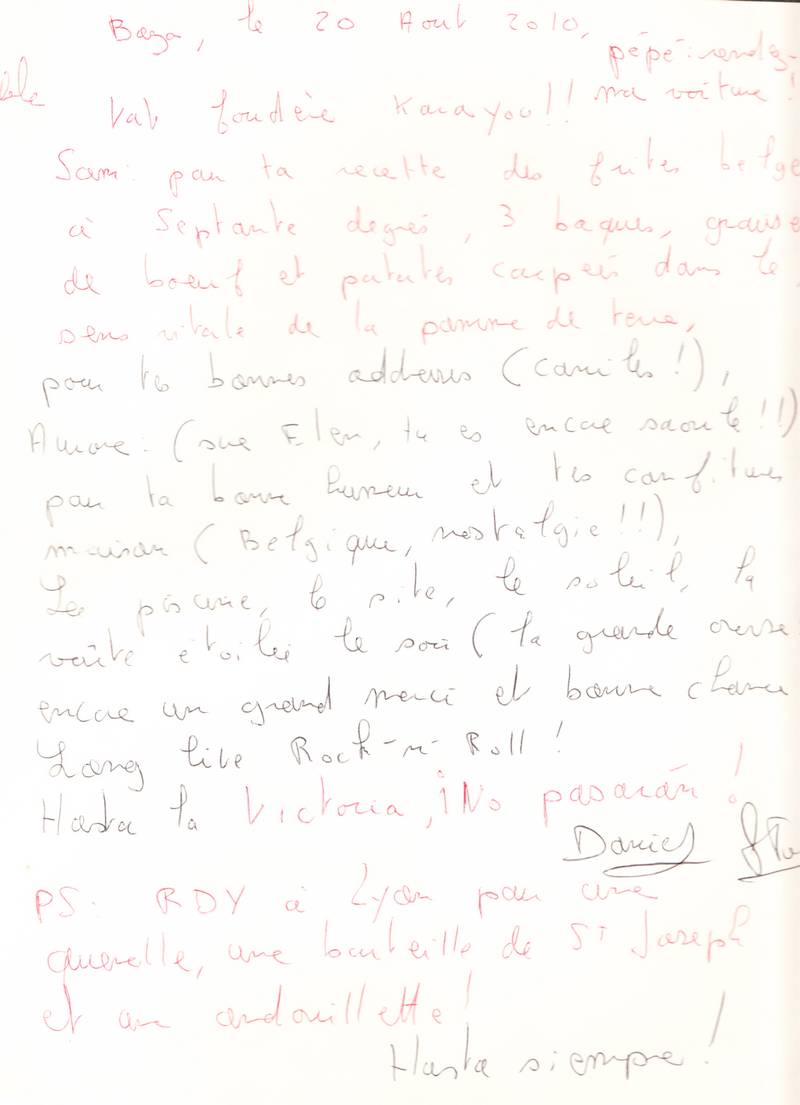 Baza, le 20 Aout 2010,
pépé: rendez-
ma voiture!
foudère Karayou!!
Sam: pour ta recette des frites belge
à Septante degrés, 3 baques, graisse
de boeuf et patates coupées dans le
sens vitale de la pomme de terre,
pour tes bonnes addresses (canites!),
Aurore: (sue Elen, tu es encore saoule!!)
pour ta bonne humeur et tes confitures
maison (Belgique, nostalgie!!),
La piscine, le site, le soleil, la
voûte étoilée le soir (la grande ourse
encore un grand merci et bonne chance
Long live Rock-n-Roll!
Hasta la Victoria, ¡No pasarán!
Daniel
PS: RDV à Lyon pour une
quenelle, une bouteille de St Joseph
et une andouillette!
Hasta siempre!